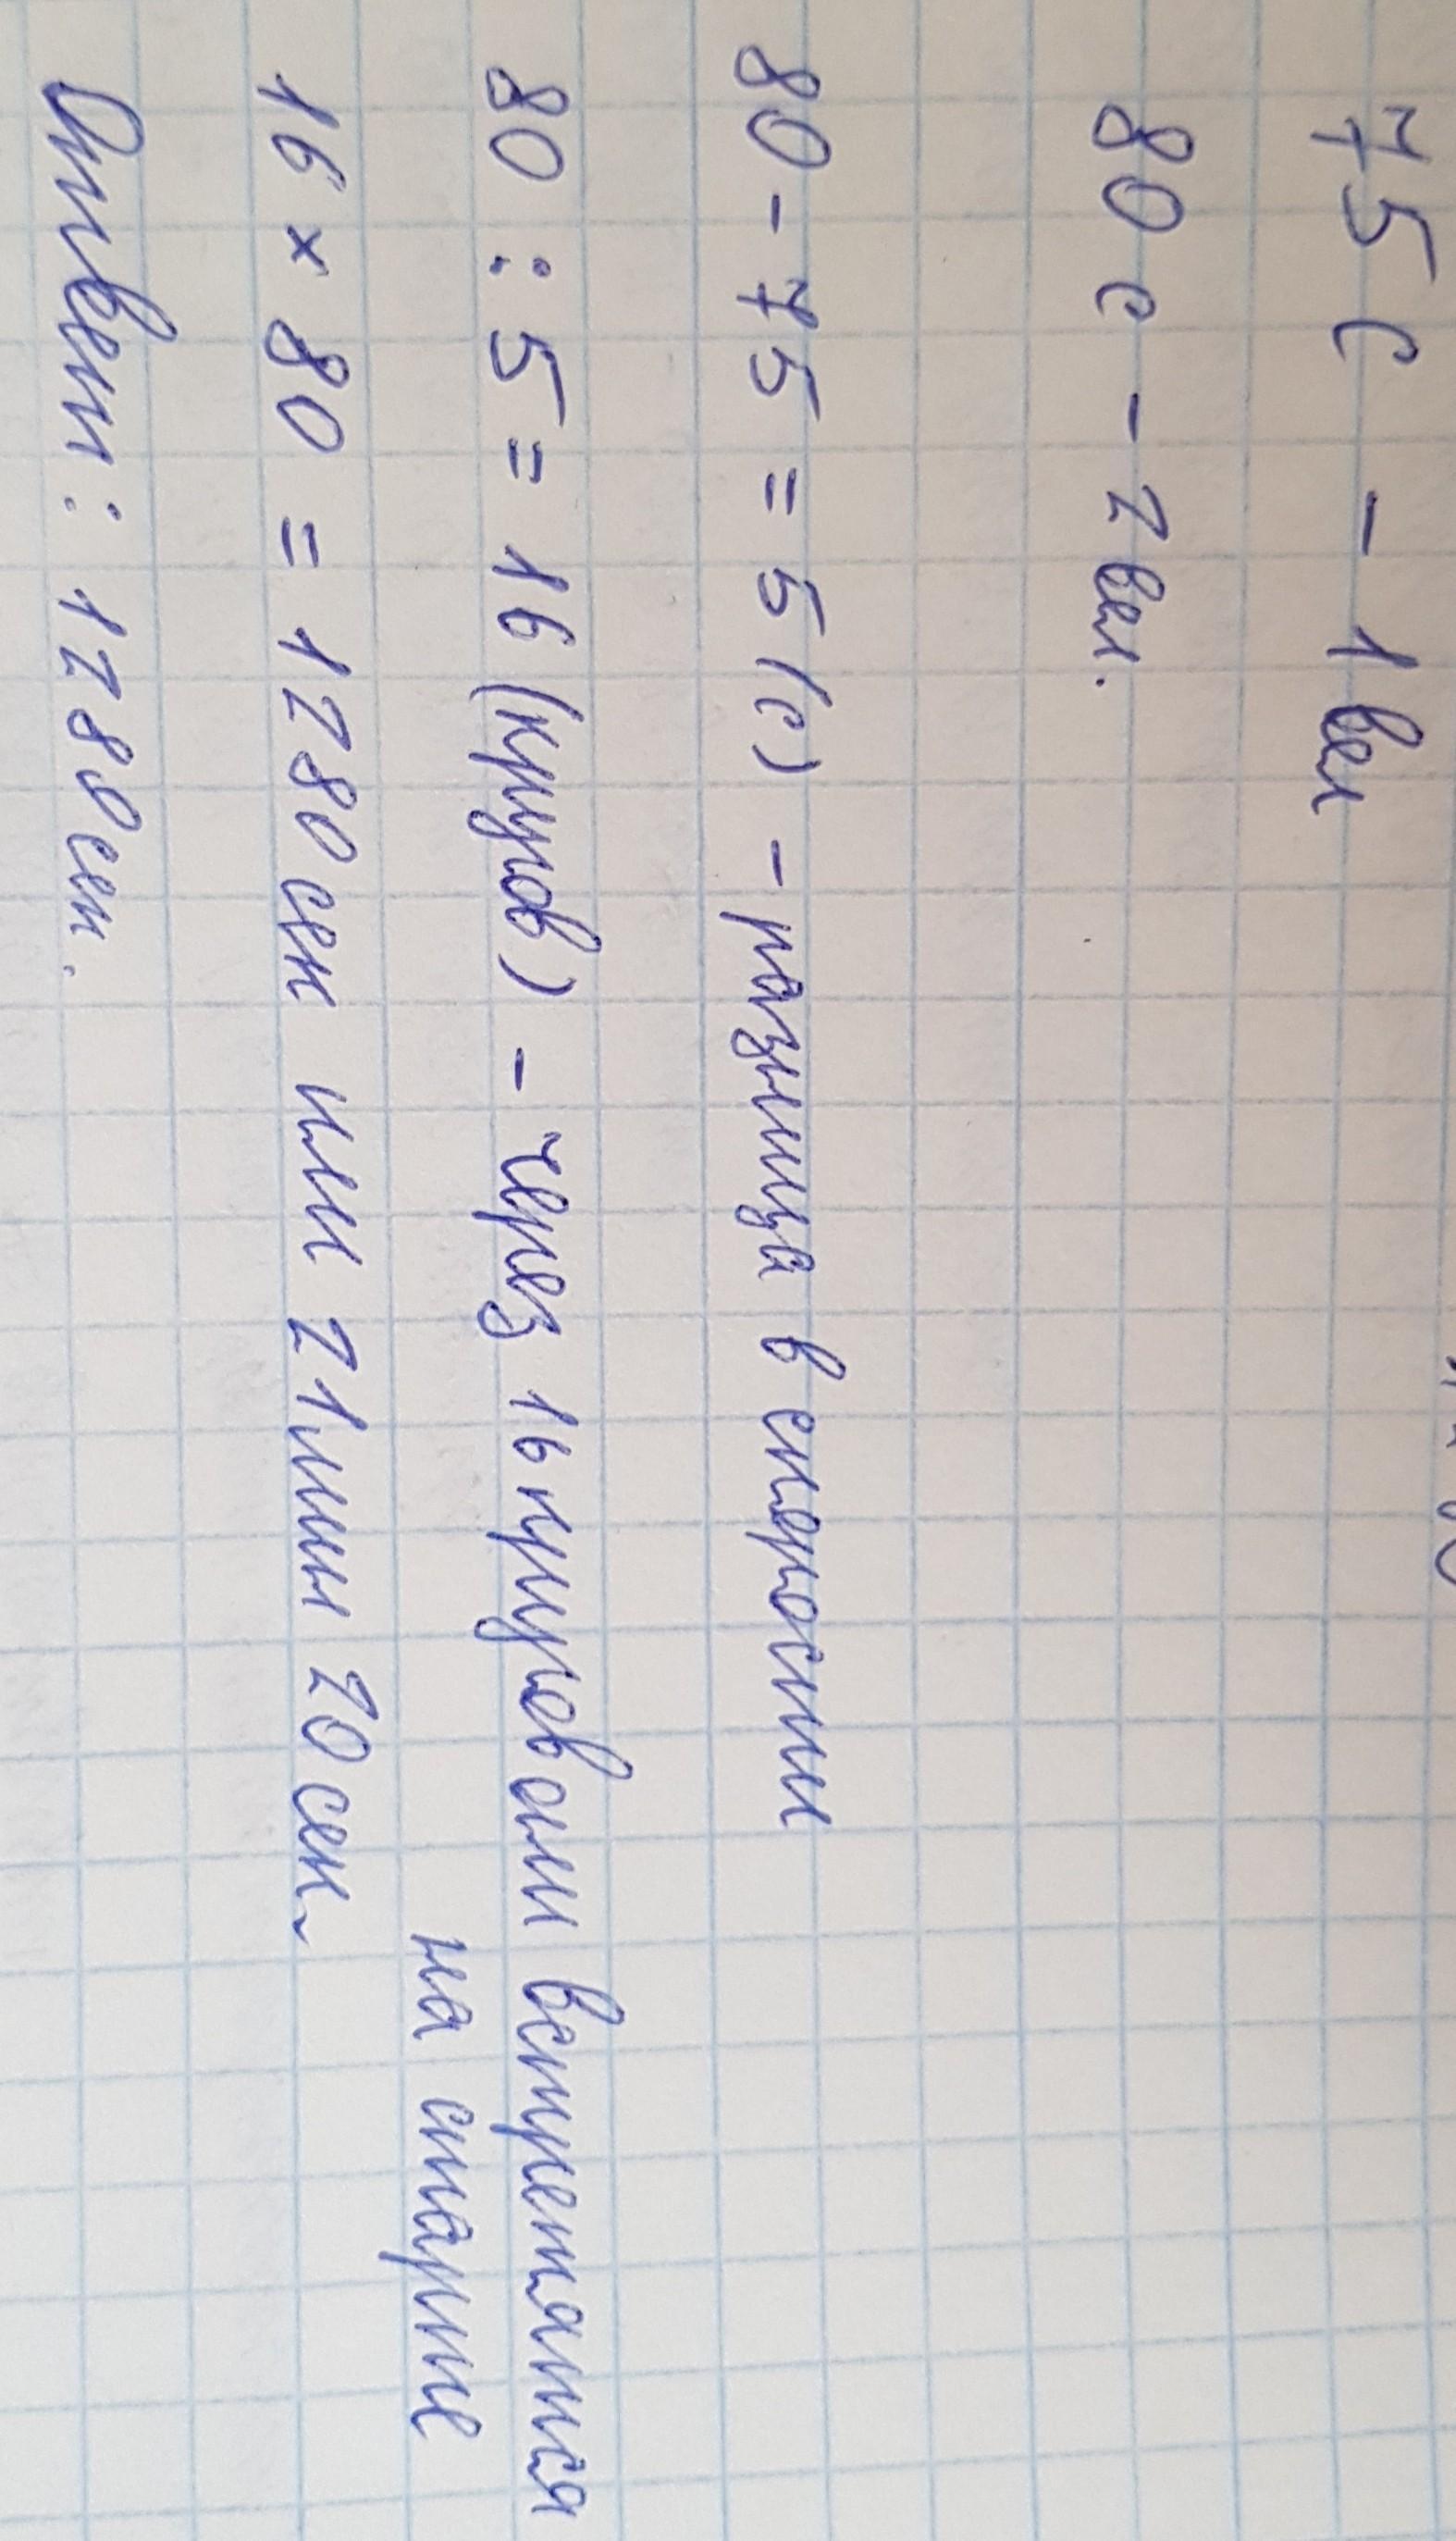 75 с - 1 вел
80 с - 2 вел.
80 - 75 = 5 (с) - разница в скорости
80 : 5 = 16 (кругов) - через 16 кругов они встретятся
на старте
16 × 80 = 1280 сек или 21 мин 20 сек
Ответ: 1280 сек.